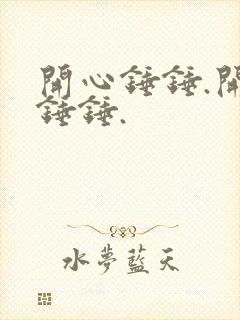 開心錘錘.開
錘錘.
水夢藍天